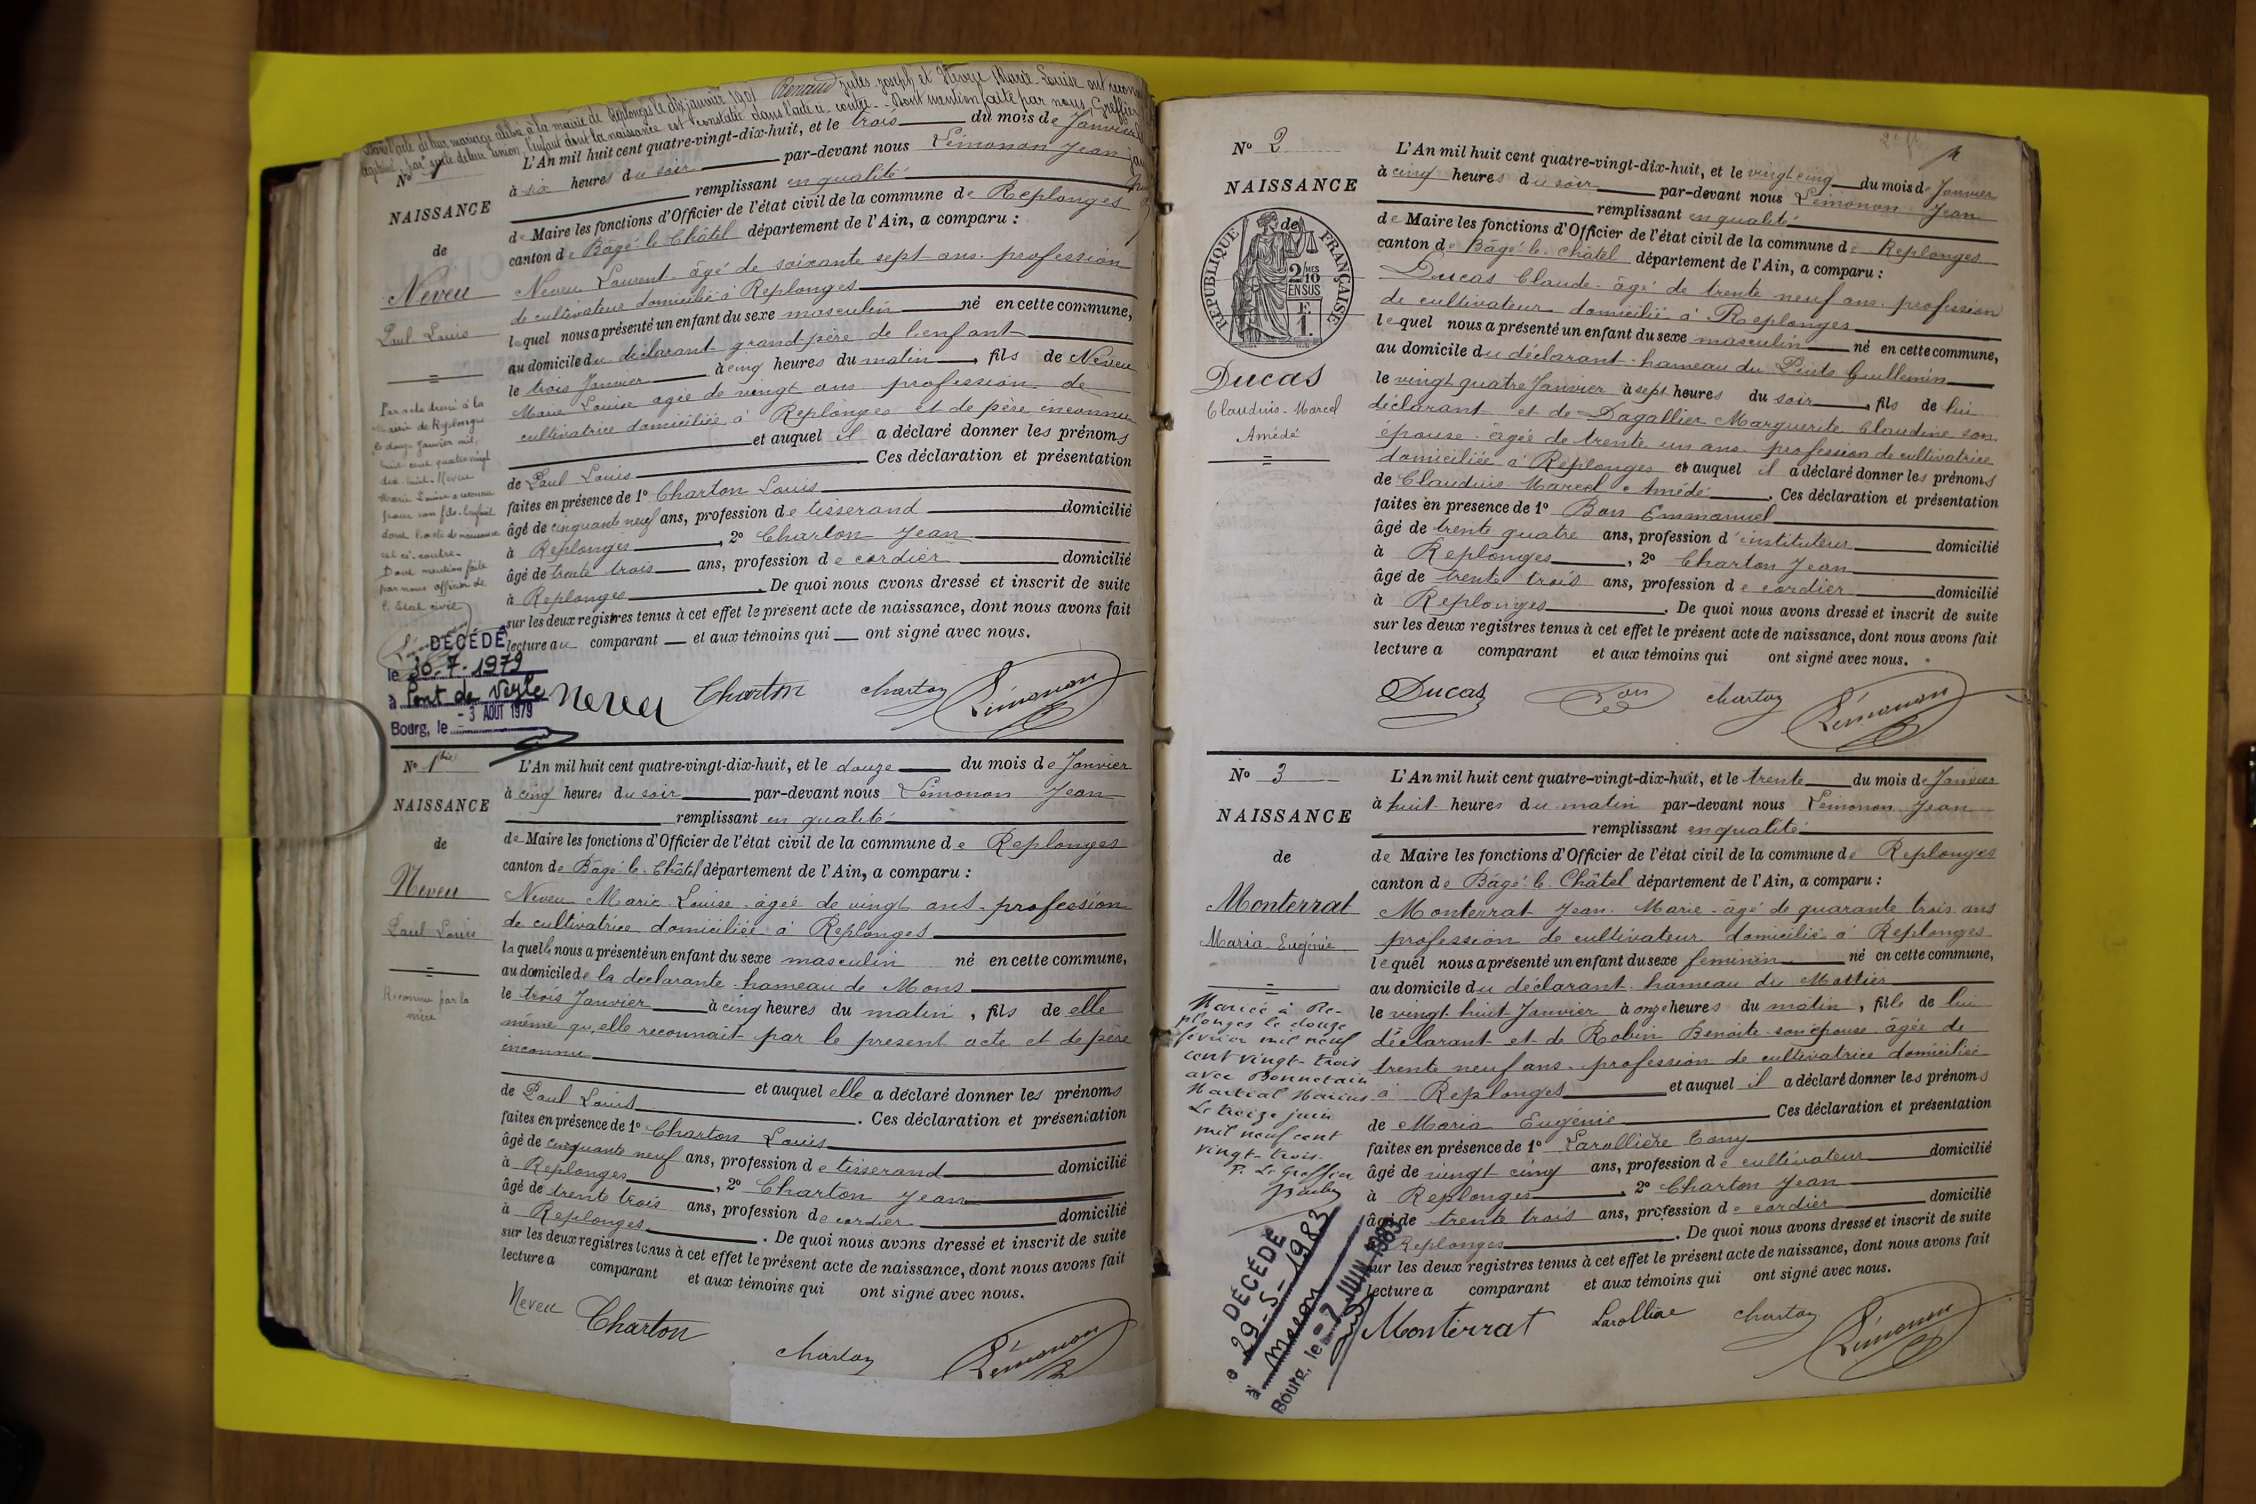 Dans l'acte de leur mariage célébré à la mairie de Replonges le dix janvier 1901 Renaud Jules Joseph et Neveu Marie-Louise ont reconnu
leur union, l'enfant dont la naissance est constatée dans l'acte ci-contre. Dont mention faite par nous, Greffier
N° 1
NAISSANCE
de
Neveu
Paul Louis
L'An mil huit cent quatre-vingt-dix-huit, et le trois du mois de Janvier
à six heures du soir par-devant nous Lémonon Jean
remplissant en qualité
de Maire les fonctions d'Officier de l'état civil de la commune de Replonges
canton de Bâgé-le-Châtel département de l'Ain, a comparu :
Neveu Laurent âgé de soixante sept ans profession
de cultivateur domicilié à Replonges
lequel nous a présenté un enfant du sexe masculin né en cette commune,
au domicile du déclarant grand-père de l'enfant
le trois Janvier à cinq heures du matin, fils de Neveu
Marie Louise agée de vingt ans profession de
cultivatrice domiciliée à Replonges et de père inconnu
et auquel il a déclaré donner les prénoms
de Paul Louis Ces déclaration et présentation
faites en présence de 1° Charton Louis
âgé de cinquante neuf ans, profession de tisserand domicilié
à Replonges, 2° Charton Jean
âgé de trente trois ans, profession de cordier domicilié
à Replonges. De quoi nous avons dressé et inscrit de suite
sur les deux registres tenus à cet effet le présent acte de naissance, dont nous avons fait
lecture au comparant et aux témoins qui ont signé avec nous.
Par acte dressé à la
Mairie de Replonges
le douze Janvier mil
huit cent quatre vingt
dix-huit. Neveu
Marie Louise a reconnu
pour son fils l'enfant
dont l'acte de naissance
est ci-contre.
Dont mention faite
par nous officier de
l'Etat civil
DÉCÉDÉ
le 30.7.1979
à Pont de Veyle
Bourg, le - 3 AOUT 1979
Neveu Charton Charton Lémonon
N° 1 bis
NAISSANCE
de
Neveu
Paul Louis
Reconnu par la
mère
L'An mil huit cent quatre-vingt-dix-huit, et le douze du mois de Janvier
à cinq heures du soir par-devant nous Lémonon Jean
remplissant en qualité
de Maire les fonctions d'Officier de l'état civil de la commune de Replonges
canton de Bâgé-le-Châtel département de l'Ain, a comparu :
Neveu Marie Louise âgée de vingt ans profession
de cultivatrice domiciliée à Replonges
laquelle nous a présenté un enfant du sexe masculin né en cette commune,
au domicile de la déclarante hameau de Mons
le trois Janvier à cinq heures du matin, fils de elle
même qu'elle reconnait par le present acte et de père
inconnu
et auquel elle a déclaré donner les prénoms
de Paul Louis. Ces déclaration et présentation
faites en présence de 1° Charton Louis
âgé de cinquante neuf ans, profession de tisserand domicilié
à Replonges, 2° Charton Jean
âgé de trente trois ans, profession de cordier domicilié
à Replonges. De quoi nous avons dressé et inscrit de suite
sur les deux registres tenus à cet effet le présent acte de naissance, dont nous avons fait
lecture a comparant et aux témoins qui ont signé avec nous.
Neveu Charton Charton Lémonon
N° 2
NAISSANCE
de
RÉPUBLIQUE FRANÇAISE
2/10 MES
EN SUS
F
1.
Ducas
Claudius-Marcel
Amédé
L'An mil huit cent quatre-vingt-dix-huit, et le vingt cinq du mois de Janvier
à cinq heures du soir par-devant nous Lémonon Jean
remplissant en qualité
de Maire les fonctions d'Officier de l'état civil de la commune de Replonges
canton de Bâgé-le-Châtel département de l'Ain, a comparu :
Ducas Claude âgé de trente neuf ans profession
de cultivateur domicilié à Replonges
lequel nous a présenté un enfant du sexe masculin né en cette commune,
au domicile du déclarant hameau du Puits Guillemin
le vingt quatre Janvier à sept heures du soir, fils de lui
déclarant et de Dagallier Marguerite Claudine son
épouse âgée de trente un ans profession de cultivatrice
domiciliée à Replonges et auquel il a déclaré donner les prénoms
de Claudius Marcel Amédé. Ces déclaration et présentation
faites en presence de 1° Bon Emmanuel
âgé de trente quatre ans, profession d'instituteur domicilié
à Replonges, 2° Charton Jean
âgé de trente trois ans, profession de cordier domicilié
à Replonges. De quoi nous avons dressé et inscrit de suite
sur les deux registres tenus à cet effet le présent acte de naissance, dont nous avons fait
lecture a comparant et aux témoins qui ont signé avec nous.
Ducas Bon Charton Lémonon
N° 3
NAISSANCE
de
Monterrat
Maria Eugénie
L'An mil huit cent quatre-vingt-dix-huit, et le trente du mois de Janvier
à huit heures du matin par-devant nous Lémonon Jean
remplissant en qualité
de Maire les fonctions d'Officier de l'état civil de la commune de Replonges
canton de Bâgé-le-Châtel département de l'Ain, a comparu :
Monterrat Jean Marie âgé de quarante trois ans
profession de cultivateur domicilié à Replonges
lequel nous a présenté un enfant du sexe feminin né en cette commune,
au domicile du déclarant hameau du Mottier
le vingt huit Janvier à onze heures du matin, fille de lui
déclarant et de Robin Benoite son épouse âgée de
trente neuf ans profession de cultivatrice domiciliée
à Replonges et auquel il a déclaré donner les prénoms
de Maria Eugénie Ces déclaration et présentation
faites en présence de 1° Larollière Tony
âgé de vingt cinq ans, profession de cultivateur domicilié
à Replonges, 2° Charton Jean
âgé de trente trois ans, profession de cordier domicilié
Replonges. De quoi nous avons dressé et inscrit de suite
sur les deux registres tenus à cet effet le présent acte de naissance, dont nous avons fait
lecture a comparant et aux témoins qui ont signé avec nous.
Mariée à Re-
plonges le douze
février mil neuf
cent vingt-trois
avec Bonnetain
Martial Marius
Le treize juin
mil neuf cent
vingt-trois.
P. Le Greffier
DÉCÉDÉ
e 29-5-1983
à Macon
Bourg, le - 7 JUIN 1983
Monterrat Larollière Charton Lémonon